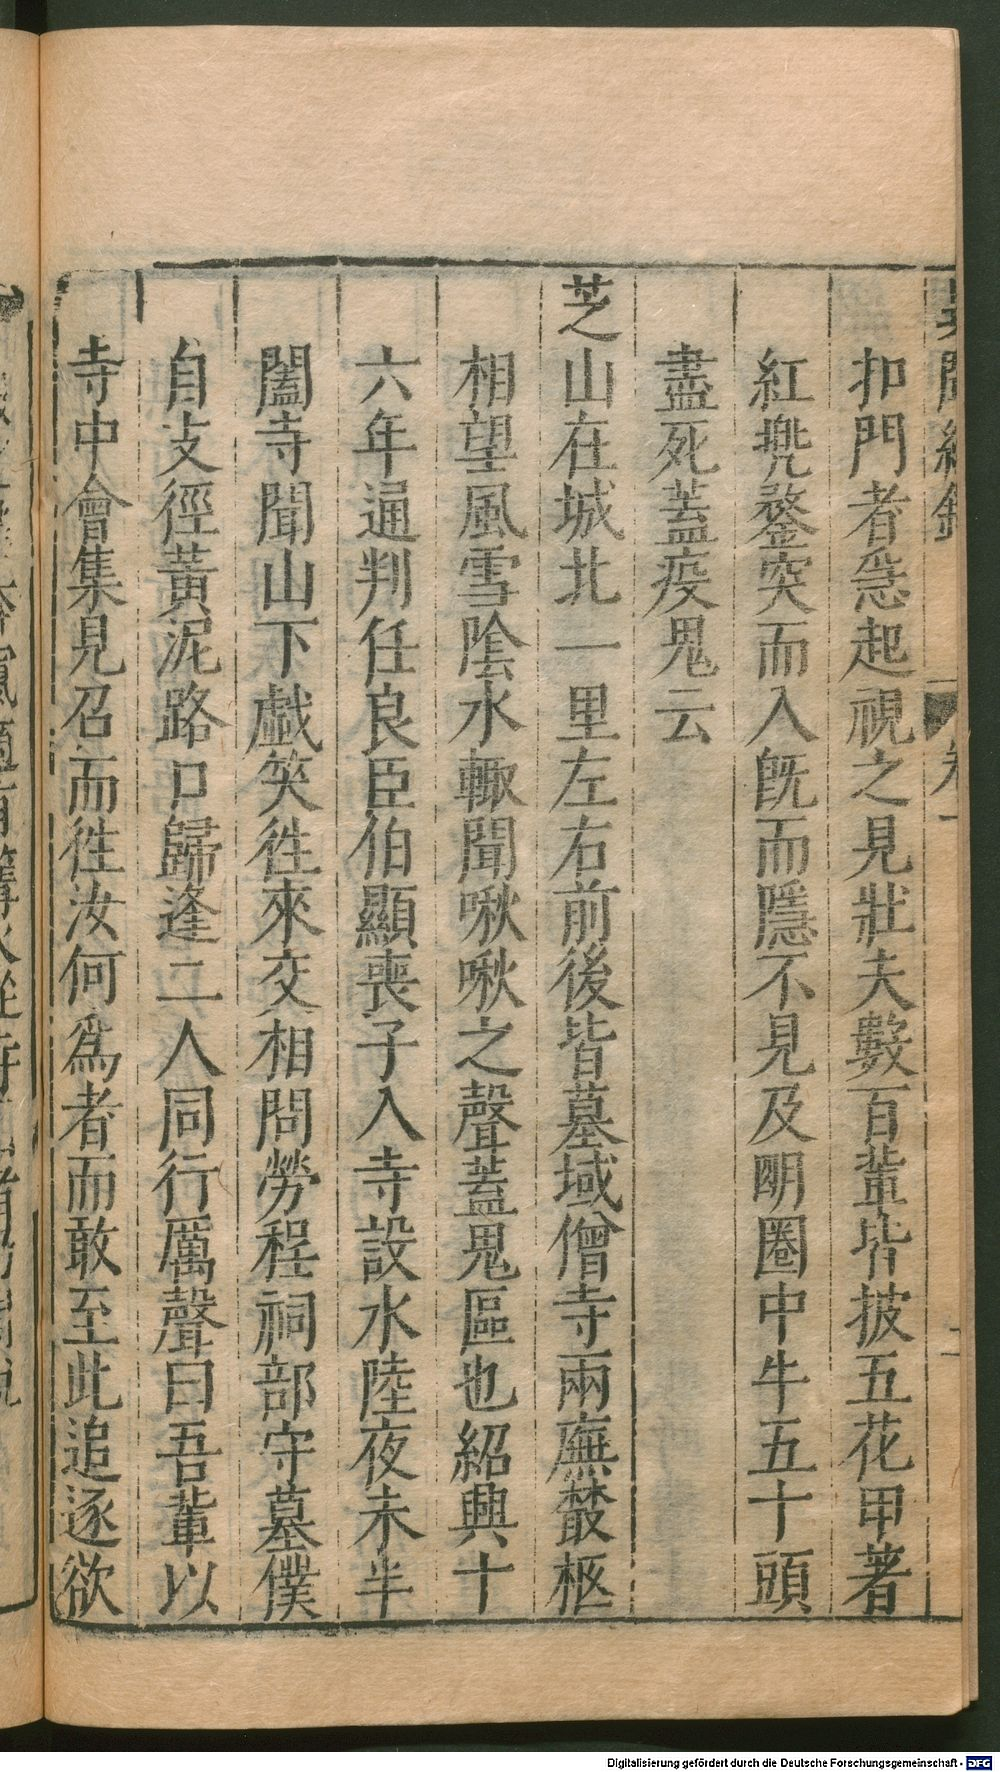 扣門者急起視之見壯夫數百輩皆披五花甲著
紅兠鍪突而入旣而隱不見及明圈中牛五十頭
盡死葢疫鬼云
芝山在城北一里左右前後皆墓域僧寺兩廡藂柩
相望風雪陰水輙聞啾啾之聲葢鬼區也紹興十
六年通判任良臣伯顯喪子入寺設水陸夜未半
闔寺聞山下戲笑徃來交相問勞程祠部守墓僕
自支徑黃泥路口歸逢二人同行厲聲曰吾輩以
寺中會集見召而徃汝何爲者而敢至此追逐欲
卷一
二
Digitalisierung gefördert durch die Deutsche Forschungsgemeinschaft - DFG